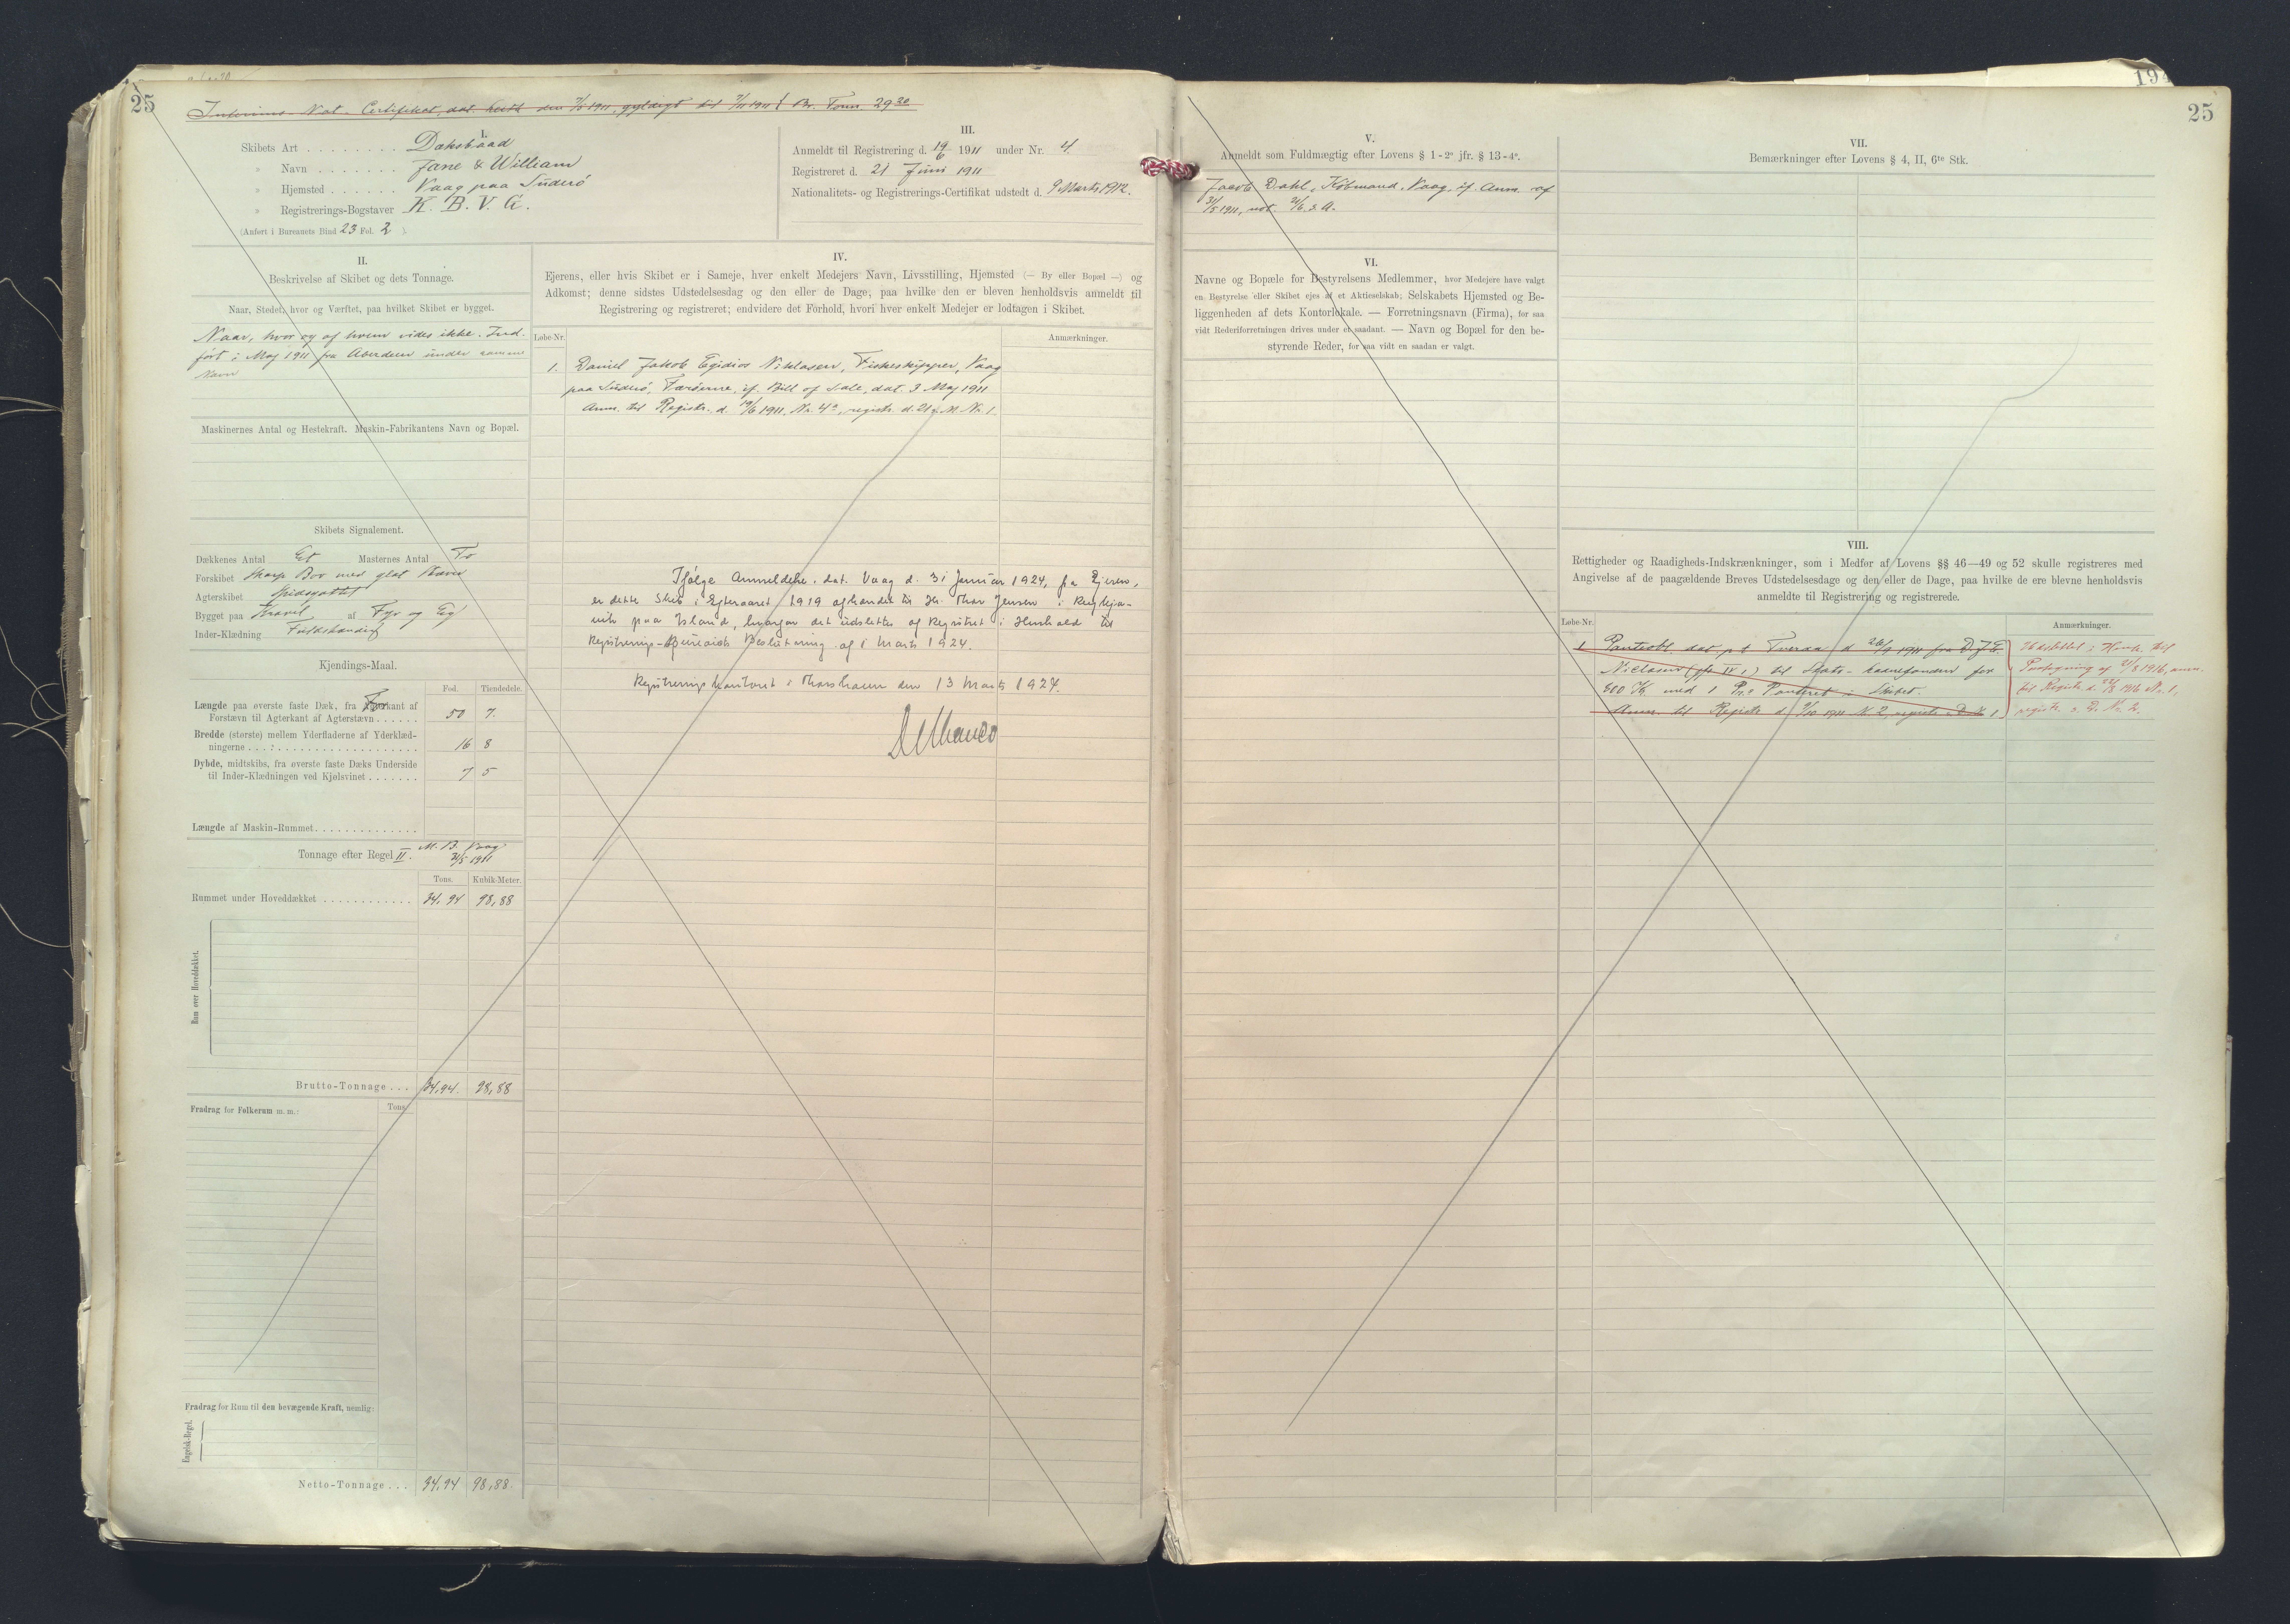 25
Interims-Nat.-Certifikat, dat. Leith den 9/5 1911, gyldigt til 9/11 1911 Br. Tons 29 20
I.
Skibets Art . . . . . . . . Dæksbaad
» Navn . . . . . . . Jane & William
» Hjemsted . . . . . . Vaag paa Suderö
» Registrerings-Bogstaver K. B. V. G.
(Anført i Bureauets Bind 23 Fol. 2 )
III.
Anmeldt til Registrering d. 19/6 1911 under Nr. 4.
Registreret d. 21 Juni 1911
Nationalitets- og Registrerings-Certifikat udstedt d. 9 Marts 1912.
II.
Beskrivelse af Skibet og dets Tonnage.
Naar, Stedet, hvor og Værftet, paa hvilket Skibet er bygget.
Naar, hvor og af hvem vides ikke. Ind-
ført i Maj 1911 fra Aberdeen under samme
Navn
Maskinernes Antal og Hestekraft. Maskin-Fabrikantens Navn og Bopæl.
Skibets Signalement.
Dækkenes Antal Et Masternes Antal To
Forskibet skarp Bov med glat Stævn
Agterskibet Spidsgattet
Bygget paa Kravel af Fyr og Eg
Inder-Klædning Fuldstændig
Kjendings-Maal.
Fod. Tiendedele.
Længde paa øverste faste Dæk, fra Forkant af
Forstævn til Agterkant af Agterstævn . . . . . . 50 7.
Bredde (største) mellem Yderfladerne af Yderklæd-
ningerne . . . . . . . . . . . . . . . . . . . . 16 8
Dybde, midtskibs, fra øverste faste Dæks Underside
til Inder-Klædningen ved Kjølsvinet . . . . . . . 7 5
Længde af Maskin-Rummet. . . . . . . . . . . . . .
Tonnage efter Regel II. M. B. Vaag
31/5 1911
Tons. Kubik-Meter.
Rummet under Hoveddækket . . . . . . . . . . . . 34,94 98,88
Rum over Hoveddækket.
Brutto-Tonnage . . . 34,94. 98,88
Fradrag for Folkerum m. m.: Tons.
Fradrag for Rum til den bevægende Kraft, nemlig:
Engelsk-Regel.
Netto-Tonnage . . . 34,94 98,88
IV.
Ejerens, eller hvis Skibet er i Sameje, hver enkelt Medejers Navn, Livsstilling, Hjemsted (— By eller Bopæl —) og
Adkomst; denne sidstes Udstedelsesdag og den eller de Dage, paa hvilke den er bleven henholdsvis anmeldt til
Registrering og registreret; endvidere det Forhold, hvori hver enkelt Medejer er lodtagen i Skibet.
Løbe-Nr. Anmærkninger.
1. Daniel Jakob Egidios Niklasen, Fiskeskipper, Vaag
paa Suderö, Færöerne, if. Bill of Sale, dat. 3 Maj 1911
Anm. til Registr. d. 19/6 1911. Nr. 4a, registr. d. 21 s. M. Nr. 1.
Ifølge Anmeldelse, dat. Vaag d. 31 Januar 1924, fra Ejeren,
er dette Skib i Efteraaret 1919 afhændet til Hr. Thor Jensen i Reykja-
vik paa Island, hvorfor det udslettes af Registret i Henhold til
Registrerings-Bureauets Beslutning af 1 Marts 1924.
Registreringskontoret i Thorshavn den 13 Marts 1924.
25
V.
Anmeldt som Fuldmægtig efter Lovens § 1-2° jfr. § 13-4°.
Jacob Dahl, Købmand, Vaag, if. Anm. af
31/5 1911, not. 21/6 s. A.
VI.
Navne og Bopæle for Bestyrelsens Medlemmer, hvor Medejere have valgt
en Bestyrelse eller Skibet ejes af et Aktieselskab; Selskabets Hjemsted og Be-
liggenheden af dets Kontorlokale. — Forretningsnavn (Firma), for saa
vidt Rederiforretningen drives under et saadant. — Navn og Bopæl for den be-
styrende Reder, for saa vidt en saadan er valgt.
VII.
Bemærkninger efter Lovens § 4, II, 6te Stk.
VIII.
Rettigheder og Raadigheds-Indskrænkninger, som i Medfør af Lovens §§ 46—49 og 52 skulle registreres med
Angivelse af de paagældende Breves Udstedelsesdage og den eller de Dage, paa hvilke de ere blevne henholdsvis
anmeldte til Registrering og registrerede.
Løbe-Nr. Anmærkninger.
1. Panteobl. dat. p. t. Tveraa d 26/9 1911 fra D. J. E.
Niclasen (jfr. IV 1) til Stats-Laanefonden for
800 Kr. med 1 Pr.s Panteret i Skibet.
Anm. til Registr. d. 9/10 1911 Nr. 2, registr. s. D. Nr. 1.
Udslettet i Henh. til
Paategning af 21/8 1916, anm.
til Registr. d. 22/8 1916 Nr. 1,
registr. s. D. Nr. 2.